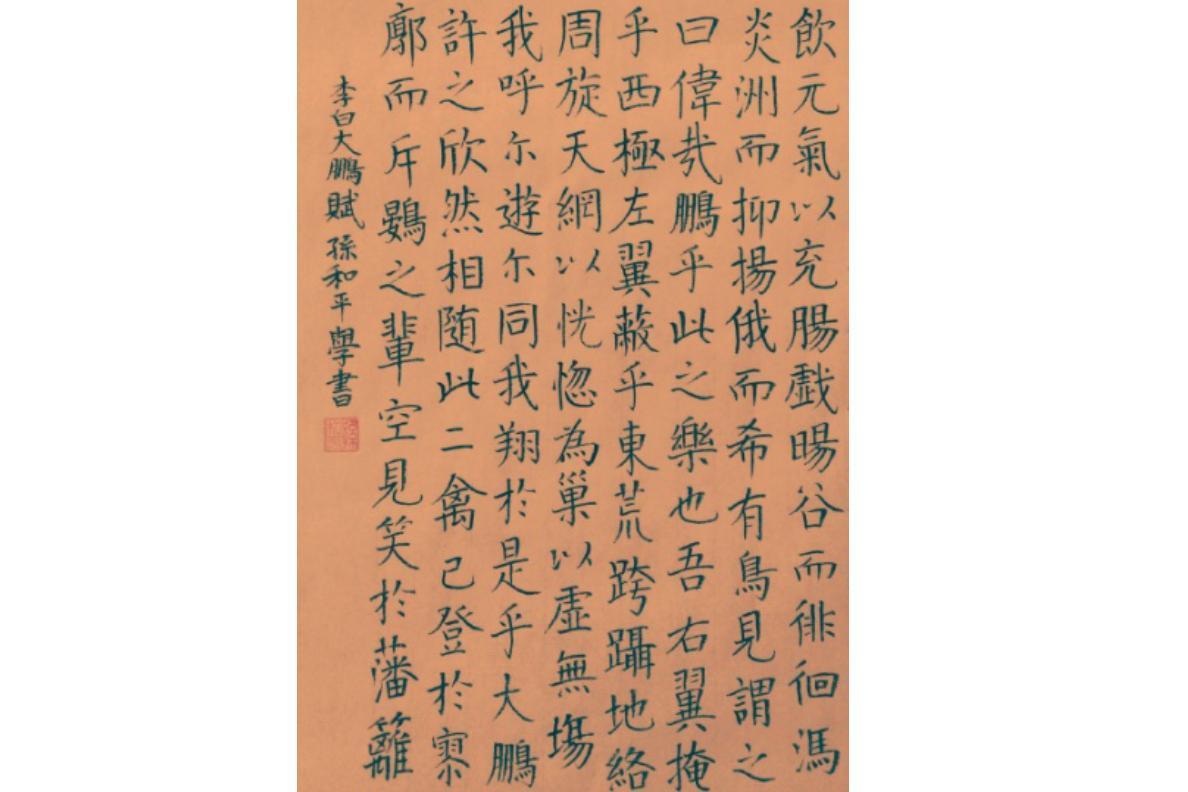 飲元氣以充腸戲暘谷而徘徊馮
炎洲而抑揚俄而希有鳥見謂之
曰偉㢤鵬乎此之樂也吾右翼掩
乎西極左翼蔽乎東荒跨躡地絡
周旋天網以恍惚為巢以虛無塲
我呼尓遊尓同我翔於是乎大鵬
許之欣然相随此二禽已登於寥
廓而斥鷃之輩空見笑於藩籬
李白大鵬賦孫和平學書